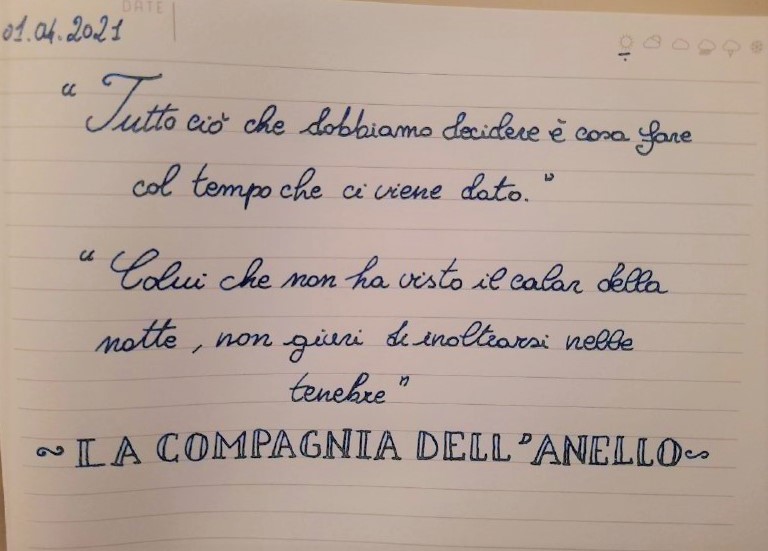 DATE
01.04.2021
“ Tutto ciò che dobbiamo decidere è cosa fare
col tempo che ci viene dato. ”
“ Colui che non ha visto il calar della
notte , non giuri di inoltrarsi nelle
tenebre ”
~ LA COMPAGNIA DELL'ANELLO ~